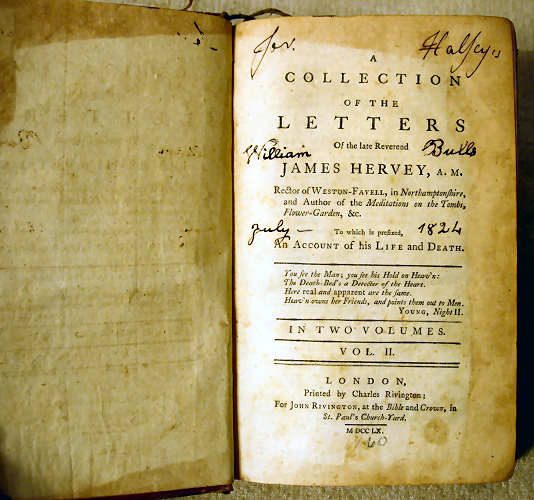 Jer. Halsey's
A
COLLECTION
OF THE
LETTERS
Of the late Reverend
William Bulls
JAMES HERVEY, A. M.
Rector of WESTON-FAVELL, in Northamptonshire,
and Author of the Meditations on the Tombs,
Flower-Garden, &c.
July — 1824
To which is prefixed,
An ACCOUNT of his LIFE and DEATH.
You see the Man; you see his Hold on Heav'n:
The Death-Bed's a Detecter of the Heart.
Here real and apparent are the same.
Heav'n owns her Friends, and points them out to Men.
YOUNG, Night II.
IN TWO VOLUMES.
VOL. II.
LONDON,
Printed by Charles Rivington;
For JOHN RIVINGTON, at the Bible and Crown, in
St. Paul's Church-Yard.
M DCC LX.
60